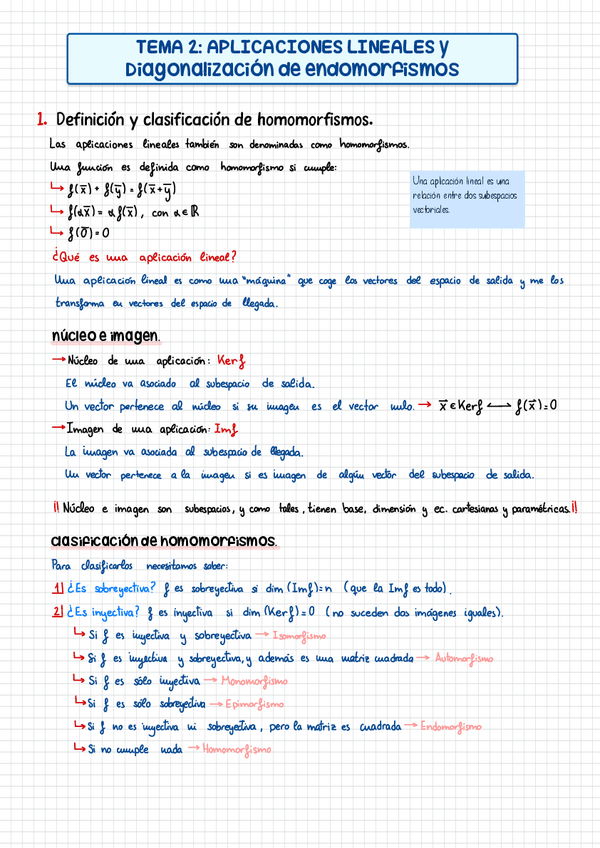 TEMA 2: APLICACIONES LINEALES y
Diagonalización de endomorfismos
1. Definición y clasificación de homomorfismos.
Las aplicaciones lineales también son denominadas como homomorfismos.
Una función es definida como homomorfismo si cumple:
↳ f(x̄) + f(ȳ) = f(x̄+ȳ)
↳ f(αx̄) = α f(x̄), con α ∈ ℝ
↳ f(0̄) = 0
Una aplicación lineal es una
relación entre dos subespacios
vectoriales.
¿Qué es una aplicación lineal?
Una aplicación lineal es como una "máquina" que coge los vectores del espacio de salida y me los
transforma en vectores del espacio de llegada.
núcleo e imagen.
→ Núcleo de una aplicación: Kerf
El núcleo va asociado al subespacio de salida.
Un vector pertenece al núcleo si su imagen es el vector nulo. → x̄ ∈ Kerf ⟷ f(x̄)=0
→ Imagen de una aplicación: Imf
La imagen va asociada al subespacio de llegada.
Un vector pertenece a la imagen si es imagen de algún vector del subespacio de salida.
¡¡ Núcleo e imagen son subespacios, y como tales, tienen base, dimensión y ec. cartesianas y paramétricas.!!
clasificación de homomorfismos.
Para clasificarlos necesitamos saber:
1| ¿Es sobreyectiva? f es sobreyectiva si dim (Imf)=n (que la Imf es todo).
2| ¿Es inyectiva? f es inyectiva si dim (Kerf)=0 (no suceden dos imágenes iguales).
↳ Si f es inyectiva y sobreyectiva → Isomorfismo
↳ Si f es inyectiva y sobreyectiva, y además es una matriz cuadrada → Automorfismo
↳ Si f es sólo inyectiva → Monomorfismo
↳ Si f es sólo sobreyectiva → Epimorfismo
↳ Si f no es inyectiva ni sobreyectiva, pero la matriz es cuadrada → Endomorfismo
↳ Si no cumple nada → Homomorfismo